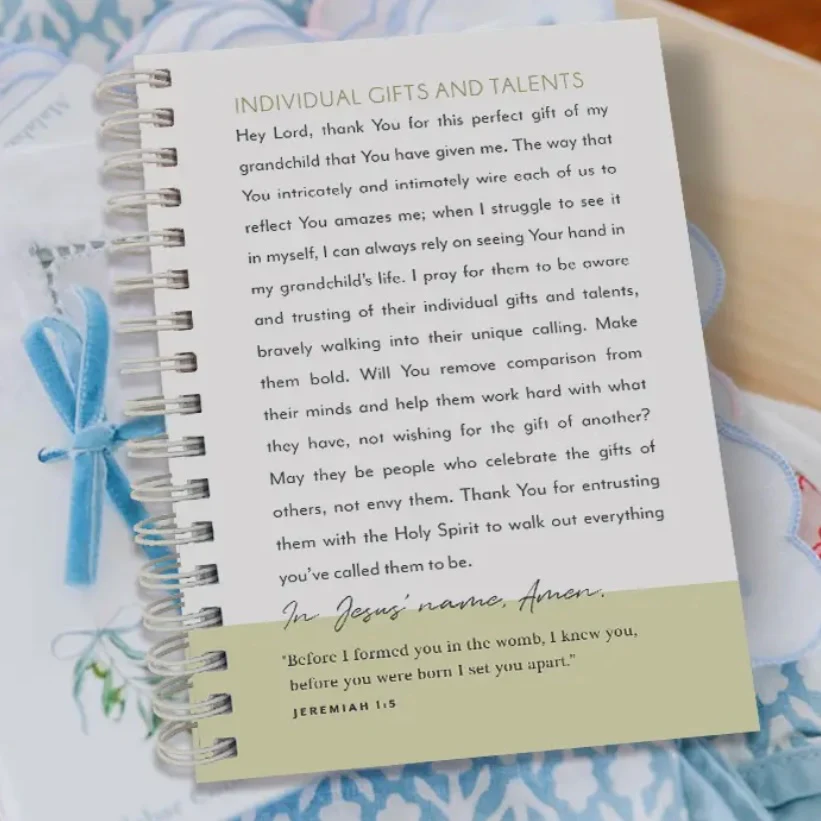 INDIVIDUAL GIFTS AND TALENTS
Hey Lord, thank You for this perfect gift of my
grandchild that You have given me. The way that
You intricately and intimately wire each of us to
reflect You amazes me; when I struggle to see it
in myself, I can always rely on seeing Your hand in
my grandchild's life. I pray for them to be aware
and trusting of their individual gifts and talents,
bravely walking into their unique calling. Make
them bold. Will You remove comparison from
their minds and help them work hard with what
they have, not wishing for the gift of another?
May they be people who celebrate the gifts of
others, not envy them. Thank You for entrusting
them with the Holy Spirit to walk out everything
you've called them to be.
In Jesus' name, Amen.
"Before I formed you in the womb, I knew you,
before you were born I set you apart."
JEREMIAH 1:5